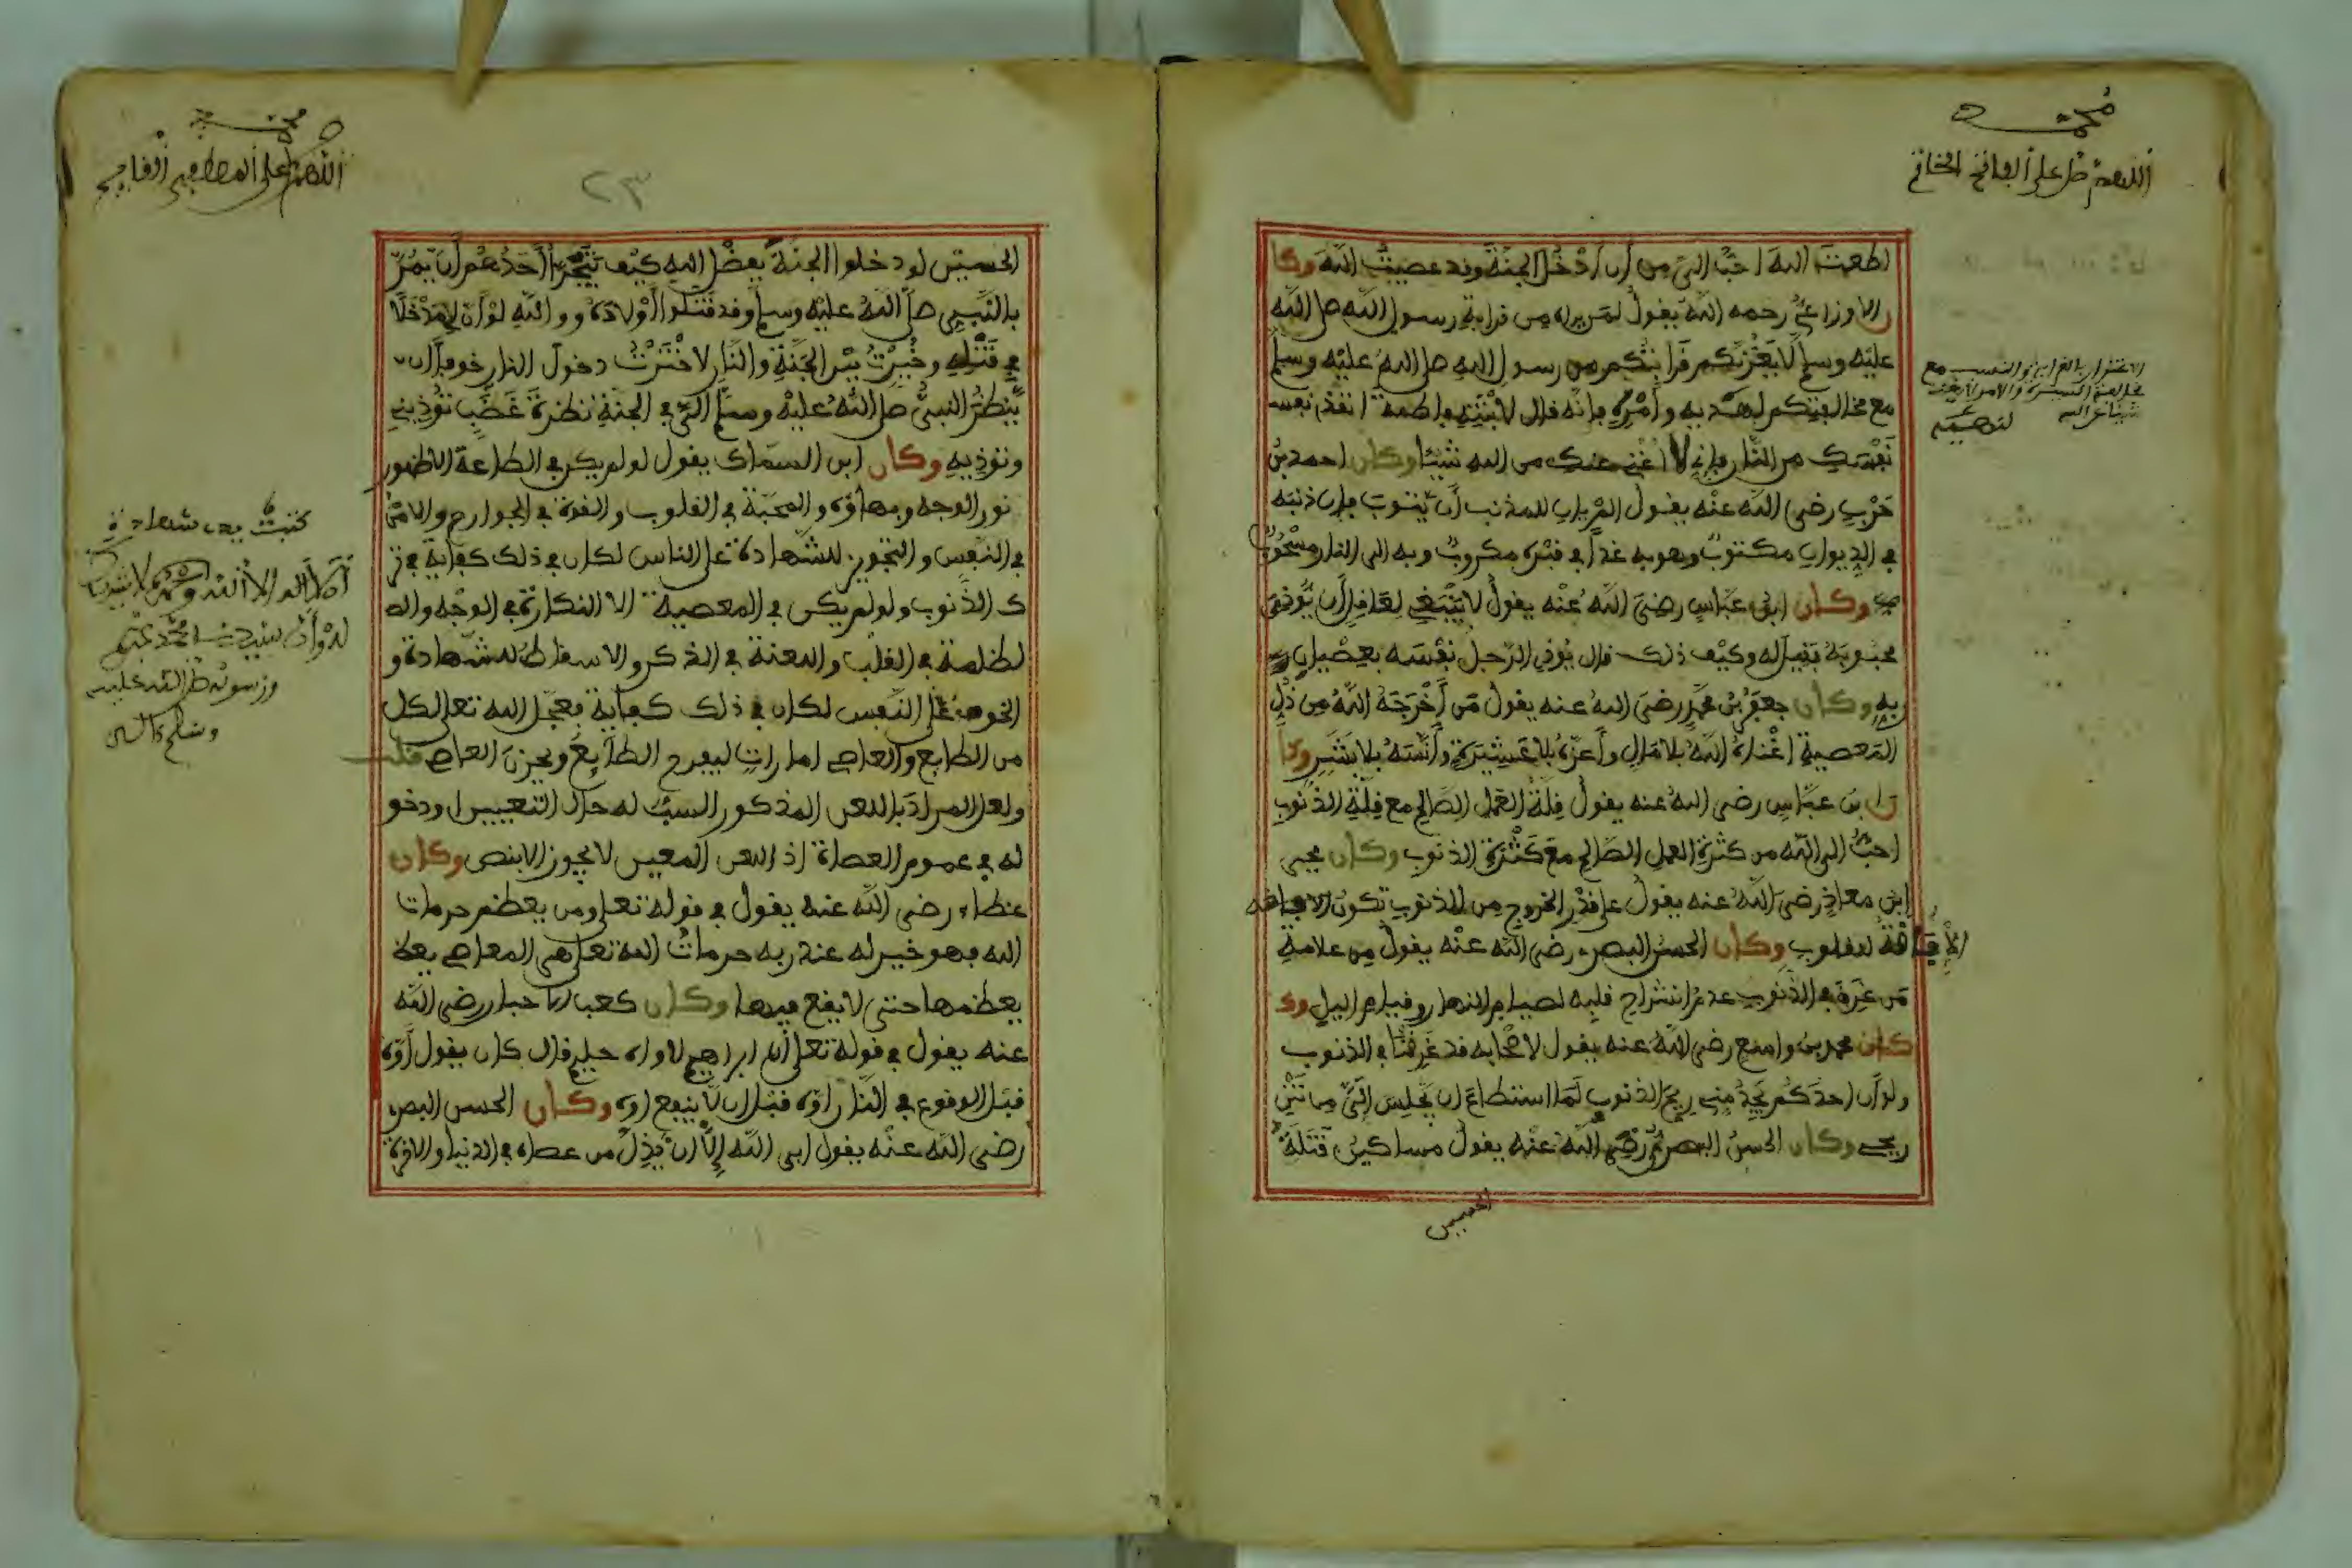 محمد
اللهم صل على الفاتح الخاتم
اطعت الله احب الي من أن أدخل الجنة وقد عصيت الله وكا
ن الاوزاعي رحمه الله يقول لمن يراه من قرابة رسول الله صلى الله
عليه وسلم لا يغرنكم قرابتكم من رسول الله صلى الله عليه وسلم
مع مخالفتكم لهديه وأمره فإنه قال لابنته فاطمة انقذي نفسـ
نفسك من النار فإني لا أغني عنك من الله شيئا وكان احمد بن
حرب رضي الله عنه يقول ألم يان للمذنب أن يتوب فإن ذنبه
في الديوان مكتوب وهو به غدا في قبره مكروب وبه الى النار مسحوب
وكان ابن عباس رضي الله عنه يقول لا ينبغي لعاقل أن يوذي
محبوبه فقيل له وكيف ذلك قال يوذي الرجل نفسه بعصيان ر
به وكان جعفر بن محمد رضي الله عنه يقول من أخرجه الله من ذل
المعصية اغناه الله بلا مال وأعزه بلا عشيرة وآنسه بلا بشر وكا
ن ابن عباس رضي الله عنه يقول قلة العمل الصالح مع قلة الذنوب
احب الى الله من كثرة العمل الصالح مع كثرة الذنوب وكان يحيى
ابن معاذ رضي الله عنه يقول على قدر الخروج من الذنوب تكون الافاقه
الإفاقة للقلوب وكان الحسن البصري رضي الله عنه يقول من علامة
من غرق في الذنوب عدم انشراح قلبه لصيام النهار وقيام اليل وكـ
كان محمد بن واسع رضي الله عنه يقول لاصحابه قد غرقنا في الذنوب
ولو أن احدكم يجد مني ريح الذنوب لما استطاع ان يجلس إلي من نتن
ريحي وكان الحسن البصري رضي الله عنه يقول مساكين قتلة
الحسين
الاغترار بالقرابة والنسب مع
مخالفة السيرة والامر لا يغني
شيئا عن الله
محمد
اللهم صل على
٢٣
الحسين لو دخلوا الجنة بفضل الله كيف يتجرأ أحدهم أن يمر
بالنبي صلى الله عليه وسلم وقد قتلوا أولاده ووالله لو أن لي مدخلا
في قتله وخيرت بين الجنة والنار لاخترت دخول النار خوفا أن
ينظر النبي صلى الله عليه وسلم إلي في الجنة نظرة غضب تؤذيني
وتوذيه وكان ابن السماك يقول لو لم يكن في الطاعة الا ظهور
نور الوجه وبهاؤه والمحبة في القلوب والقوة في الجوارح والامن
في النفس والتجويز للشهادة على الناس لكان في ذلك كفاية في تر
ك الذنوب ولو لم يكن في المعصية الا النكارة في الوجه والـ
لظلمة في القلب واللعنة في الذكر والاسقاط للشهادة و
الخوف على النفس لكان في ذلك كفاية فجعل الله تعلى لكل
من الطايع والعاصي امارات ليفرح الطايع ويحزن العاصي قلت
ولعل المراد باللعن المذكور السب له حال التعيير او دخو
له في عموم العصاة اذ اللعن المعين لا يجوز الا بنص وكان
عطاء رضي الله عنه يقول في قوله تعلى ومن يعظم حرمات
الله فهو خير له عند ربه حرمات الله تعلى هي المعاصي يعظـ
يعظمها حتى لا يقع فيها وكان كعب الاحبار رضي الله
عنه يقول في قوله تعلى إن ابراهيم لاواه حليم قال كان يقول أوه
قبل الوقوع في النار اوه قبل ان لا ينفع اوه وكان الحسن البصري
رضي الله عنه يقول ابى الله إلا ان يذل من عصاه في الدنيا والاخرة